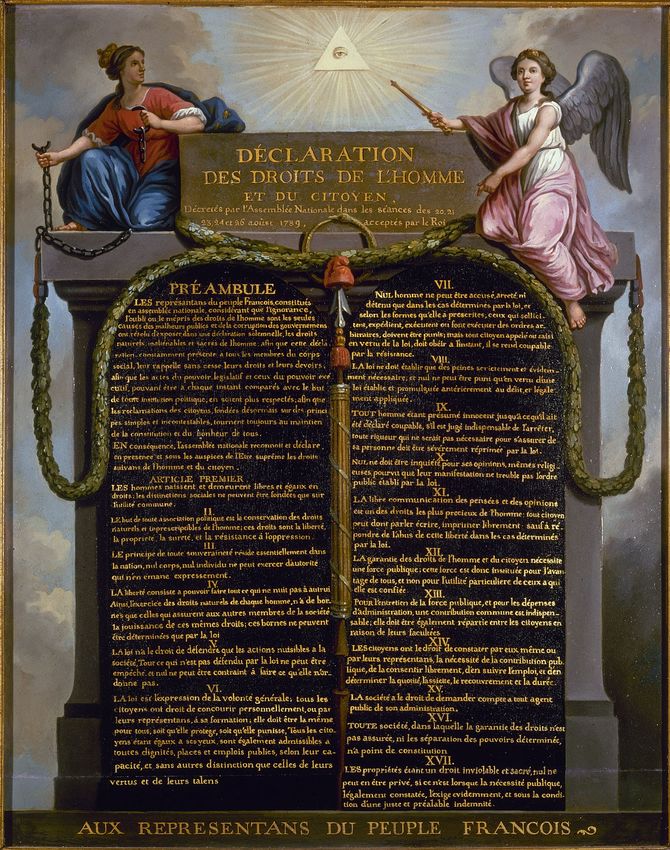 DÉCLARATION
DES DROITS DE L'HOMME
ET DU CITOYEN,
Décretés par l'Assemblée Nationale dans les séances des 20, 21
23, 24 et 26 août 1789, acceptés par le Roi
PRÉAMBULE
LES représentans du peuple Francois, constitués
en assemblée nationale, considérant que l'ignorance,
l'oubli ou le mépris des droits de l'homme sont les seules
causes des malheurs publics et de la corruption des gouvernemens
ont résolu d'exposer dans une déclaration solemnelle, les droits
naturels, inaliénables et sacrés de l'homme; afin que cette décla
ration, constamment présente a tous les membres du corps
social, leur rappelle sans cesse leurs droits et leurs devoirs;
afin que les actes du pouvoir legislatif et ceux du pouvoir exé
cutif, pouvant être a chaque instant comparés avec le but
de toute institution politique, en soient plus respectés; afin que
les reclamations des citoyens, fondées désormais sur des princi
pes simples et incontestables, tournent toujours au maintien
de la constitution et du bonheur de tous.
EN conséquence, l'assemblée nationale reconnoît et déclare
en presence et sous les auspices de l'Etre suprême les droits
suivans de l'homme et du citoyen.
ARTICLE PREMIER.
LES hommes naissent et demeurent libres et égaux en
droits; les distinctions sociales ne peuvent être fondées que sur
l'utilité commune.
II.
LE but de toute association politique est la conservation des droits
naturels et imprescriptibles de l'homme; ces droits sont la liberté,
la propriété, la sureté, et la résistance à l'oppression.
III.
LE principe de toute souveraineté réside essentiellement dans
la nation, nul corps, nul individu ne peut exercer d'autorité
qui n'en émane expressement.
IV.
LA liberté consiste a pouvoir faire tout ce qui ne nuit pas à autrui
Ainsi, l'exercice des droits naturels de chaque homme, n'a de bor-
nes que celles qui assurent aux autres membres de la société
la jouissance de ces mêmes droits; ces bornes ne peuvent
être déterminées que par la loi
V.
LA loi n'a le droit de défendre que les actions nuisibles a la
société. Tout ce qui n'est pas défendu par la loi ne peut être
empêché, et nul ne peut être contraint à faire ce qu'elle n'or-
donne pas.
VI.
LA loi est l'expression de la volonté générale; tous les
citoyens ont droit de concourir personnellement, ou par
leurs représentans, à sa formation; elle doit être la même
pour tous, soit qu'elle protege, soit qu'elle punisse, Tous les cito-
yens étant égaux a ses yeux, sont également admissibles a
toutes dignités, places et emplois publics, selon leur ca-
pacité, et sans autres distinction que celles de leurs
vertus et de leurs talens
VII.
NUL homme ne peut être accusé, arreté, ni
détenu que dans les cas déterminés par la loi, et
selon les formes qu'elle à prescrites, ceux qui sollici-
tent, expédient, exécutent ou font exécuter des ordres ar-
bitraires, doivent être punis; mais tout citoyen appelé ou saisi
en vertu de la loi, doit obéir a l'instant, il se rend coupable
par la résistance.
VIII.
LA loi ne doit établir que des peines strictement et évidem-
ment nécessaire, et nul ne peut être puni qu'en vertu d'une
loi établie et promulguée antérieurement au délit, et légale-
ment appliquée.
IX.
TOUT homme étant présumé innocent jusqu'a ce qu'il ait
été déclaré coupable, s'il est jugé indispensable de l'arrêter,
toute rigueur qui ne serait pas nécessaire pour s'assurer de
sa personne doit être sévèrement réprimée par la loi.
X.
NUL ne doit être inquiété pour ses opinions, mêmes religi
euses pourvu que leur manifestation ne trouble pas l'ordre
public établi par la loi.
XI.
LA libre communication des pensées et des opinions
est un des droits les plus precieux de l'homme; tout citoyen
peut dont parler écrire, imprimer librement: sauf à ré-
pondre de l'abus de cette liberté dans les cas déterminés
par la loi.
XII.
LA garantie des droits de l'homme et du citoyen nécessite
une force publique; cette force est donc instituée pour l'avan-
tage de tous, et non pour l'utilité particuliere de ceux a qui
elle est confiée.
XIII.
POUR l'entretien de la force publique, et pour les dépenses
d'administration, une contribution commune est indispen-
sable; elle doit être également répartie entre les citoyens en
raison de leurs facultées
XIV.
LES citoyens ont le droit de constater par eux même ou
par leurs représentans, la nécessité de la contribution pub-
lique, de la consentir librement, d'en suivre l'emploi, et d'en
déterminer la quotité, l'assiete, le recouvrement et la durée.
XV.
LA société a le droit de demander compte a tout agent
public de son administration.
XVI.
TOUTE société, dans laquelle la garantie des droits n'est
pas assurée, ni les séparation des pouvoirs déterminée,
n'a point de constitution
XVII.
LES propriétés étant un droit inviolable et sacré, nul ne
peut en être privé, si ce n'est lorsque la nécessité publique,
légalement constatée, l'exige evidemment, et sous la condi-
tion d'une juste et préalable indemnité.
AUX REPRESENTANS DU PEUPLE FRANCOIS